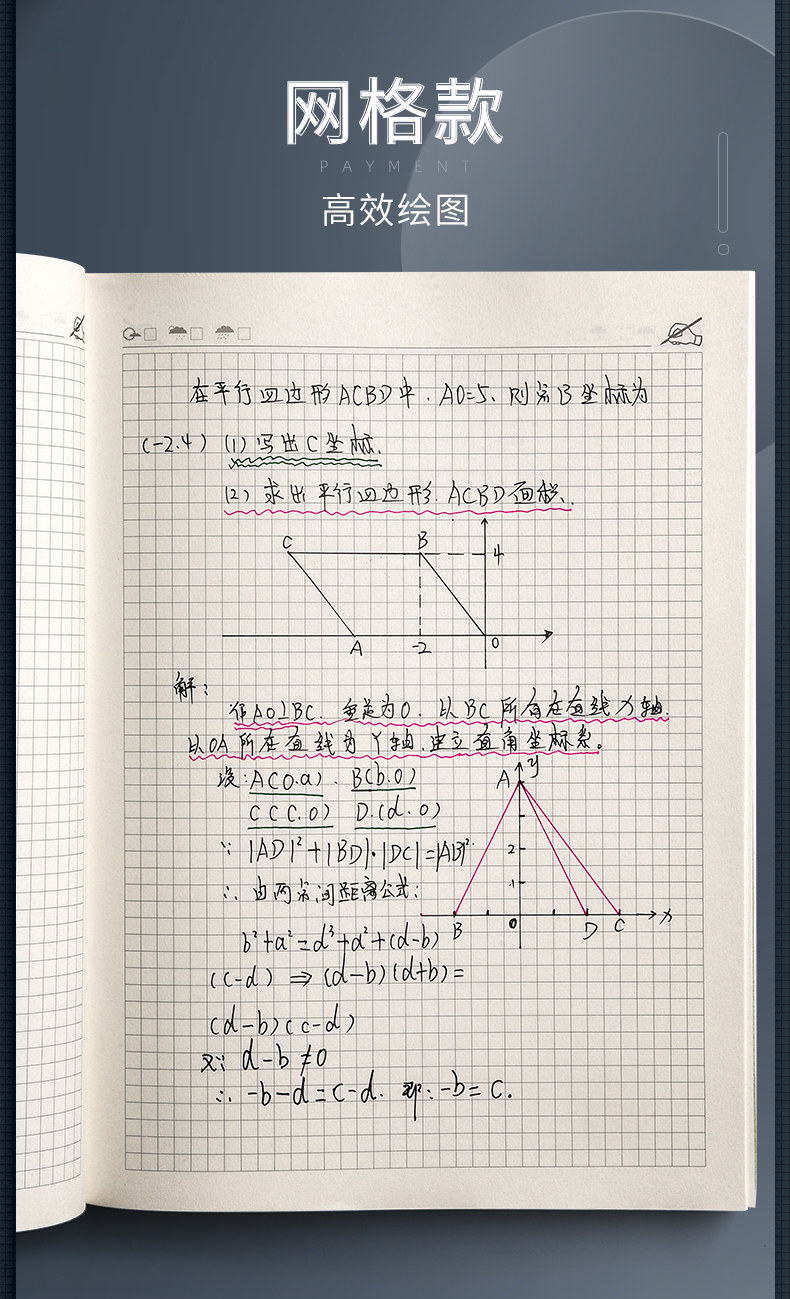 网格款
PAYMENT
高效绘图
在平行四边形ACBD中.AO=5、则点B坐标为
(-2.4) (1)写出C坐标.
(2)求出平行四边形.ACBD面积.
C B 4
A -2 0
解:
作AO⊥BC.垂足为O.以BC所在直线为X轴.
以OA所在直线为Y轴.建立直角坐标系。
设:A(0.a)、B(b.0)
C(C.0) D.(d.0)
∵ |AD|²+|BD|·|DC|=|AB|²
∴ 由两点间距离公式:
b²+a²=d³+a²+(d-b)
(c-d) ⇒ (d-b)(d+b)=
(d-b)(c-d)
又∵ d-b≠0
∴ -b-d=c-d. 即:-b=c.
A y
2
1
B 0 D C x